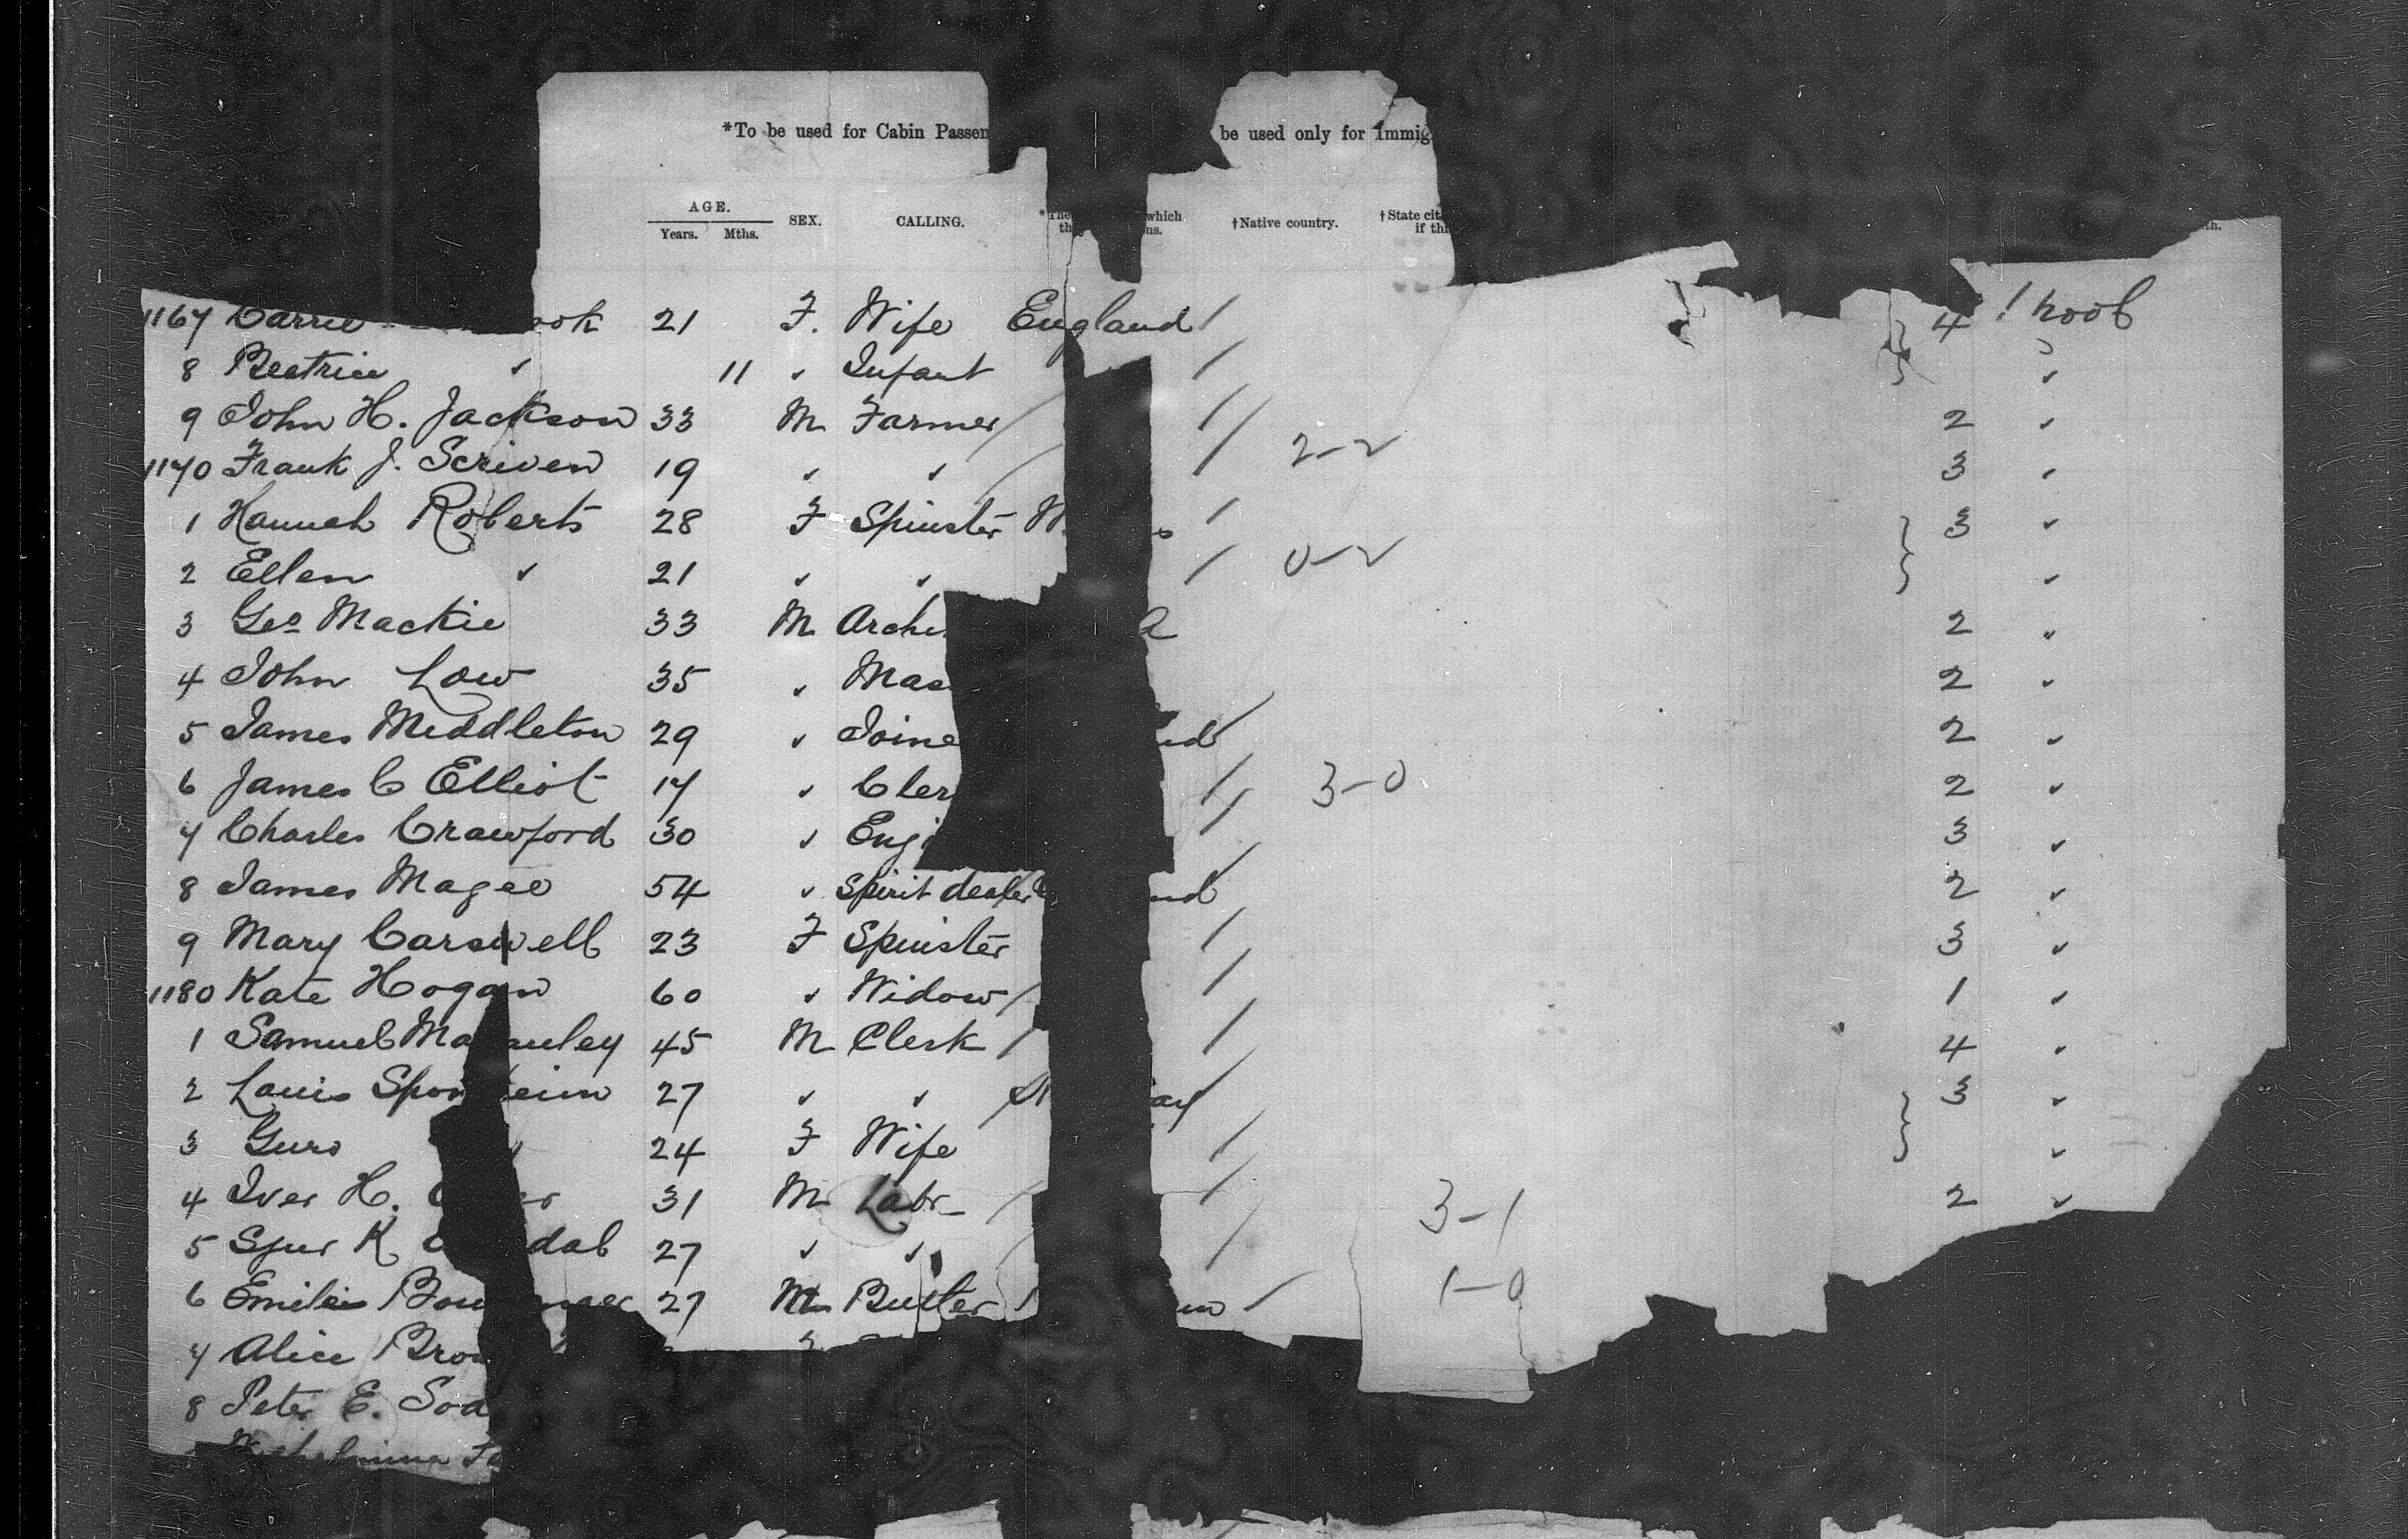 *To be used for Cabin Passen be used only for Immig
AGE. SEX. CALLING. which †Native country. †State cit
Years. Mths. if thi
1167 Carrie ook 21 F. Wife England 4 1
8 Beatrice " 11 " Infant "
9 John H. Jackson 33 M Farmer 2 "
2-2
1170 Frank J. Scriven 19 " " 3 "
1 Hannah Roberts 28 F Spinster W s 3 "
2 Ellen " 21 " " 0-2 "
3 Geo Mackie 33 M Archi 2 "
4 John Low 35 " Mas 2 "
5 James Middleton 29 " Joine nd 2 "
6 James C Elliot 17 " Cler 3-0 2 "
7 Charles Crawford 30 " Engi 3 "
8 James Magee 54 " Spirit dealer nd 2 "
9 Mary Carswell 23 F Spinster 3 "
1180 Kate Hogan 60 " Widow 1 "
1 Samuel Ma auley 45 M Clerk 4 "
2 Louis Spon heim 27 " " N ay 3 "
3 Guro " 24 F Wife "
4 Iver H. er 31 M Labr 3-1 2 "
5 K dal 27 " "
6 27 M Butler 1-0
7 Alice Brow
8 Peter E. Soa